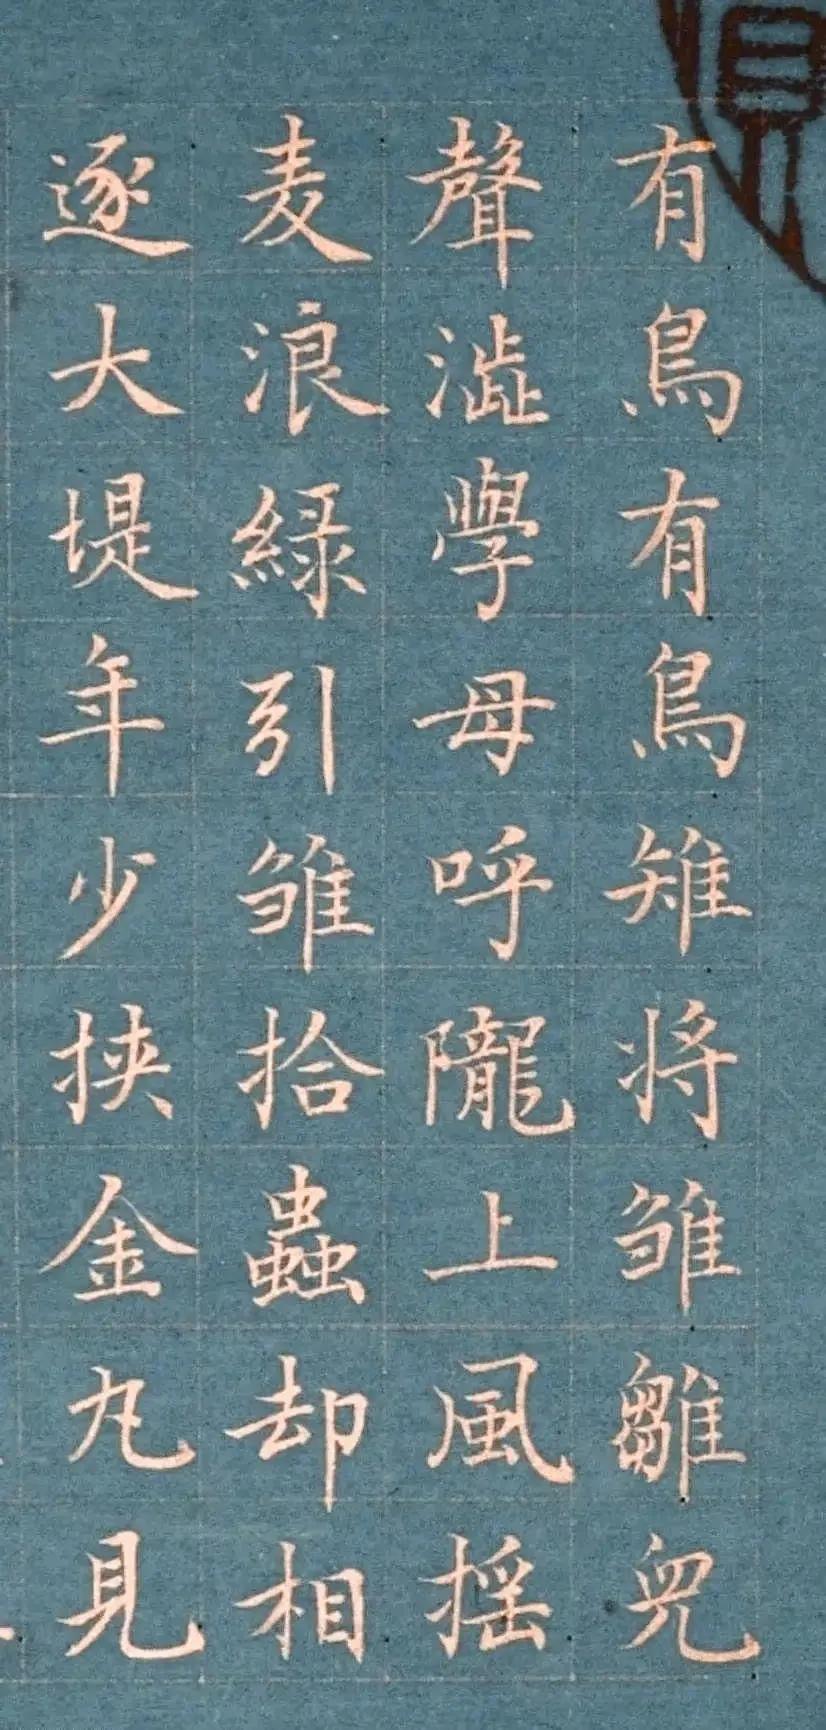 有鳥有鳥雉將雛雛兒
聲澁學母呼隴上風揺
麦浪緑引雛拾蟲却相
逐大堤年少挾金丸見